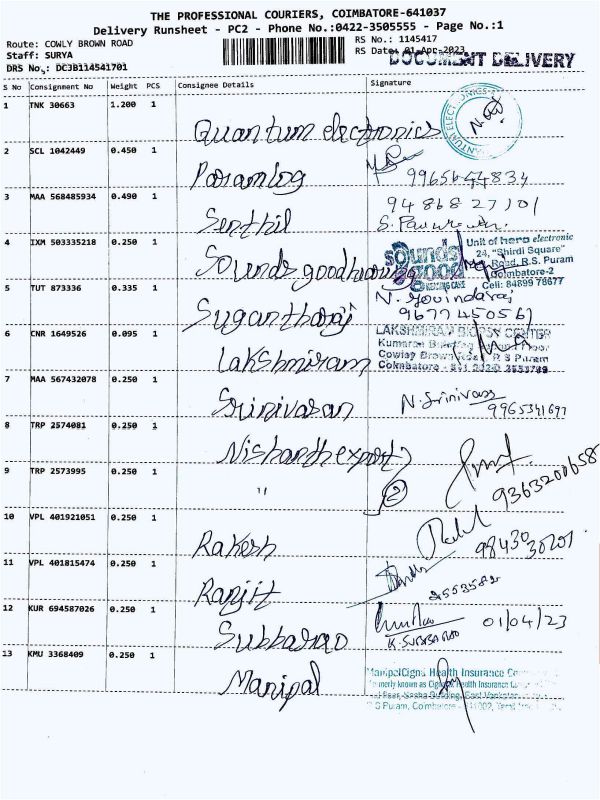 THE PROFESSIONAL COURIERS, COIMBATORE-641037
Delivery Runsheet - PC2 - Phone No.:0422-3505555 - Page No.:1
Route: COWLY BROWN ROAD
RS No.: 1145417
Staff: SURYA
RS Date: 01-Apr-2023
DOCUMENT DELIVERY
DRS No.: DCJB114541701
S No Consignment No Weight PCS Consignee Details Signature
1 TNK 30663 1.200 1
Quantum electronics
2 SCL 1042449 0.450 1
Paramlog 9965644834
3 MAA 568485934 0.490 1
Senthil 9486827101
4 IXM 503335218 0.250 1
Sounds good hearing
sounds good
HEARING CARE
Unit of hero electronic
24, "Shirdi Square"
Road, R.S. Puram
Coimbatore-2
Cell: 84899 76677
5 TUT 873336 0.335 1
Suganthraj
N. Govindaraj
9677450561
6 CNR 1649526 0.095 1
Lakshmiram
LAKSHMIRAM BIOPSY CENTER
Kumaran Floor
Cowley Brown Road, R S Puram
Coimbatore
7 MAA 567432078 0.250 1
Srinivasan N. Srinivasan
9965341697
8 TRP 2574081 0.250 1
Nishanth export
9363200658
9 TRP 2573995 0.250 1
" 2
10 VPL 401921051 0.250 1
Rakesh
9843030201
11 VPL 401815474 0.250 1
Ranjit
2553582
12 KUR 694587026 0.250 1
Subbarao 01/04/23
K. SUBBA RAO
13 KMU 3368409 0.250 1
Manipal
ManipalCigna Health Insurance
Formerly known as Health Insurance
R S Puram, Coimbatore